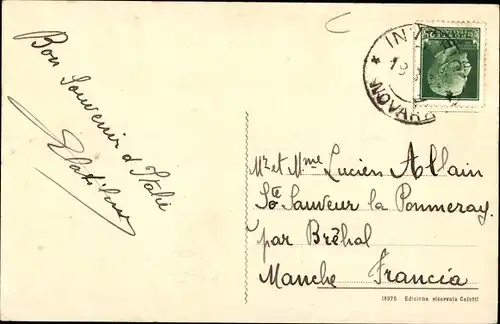 Bon Souvenir d'Italie
INV
19
NOVARA
Mr et Mme Lucien Allain
Ste Sauveur la Pommeray
par Bréhal
Manche Francia
18975 Edizione riservata Galotti